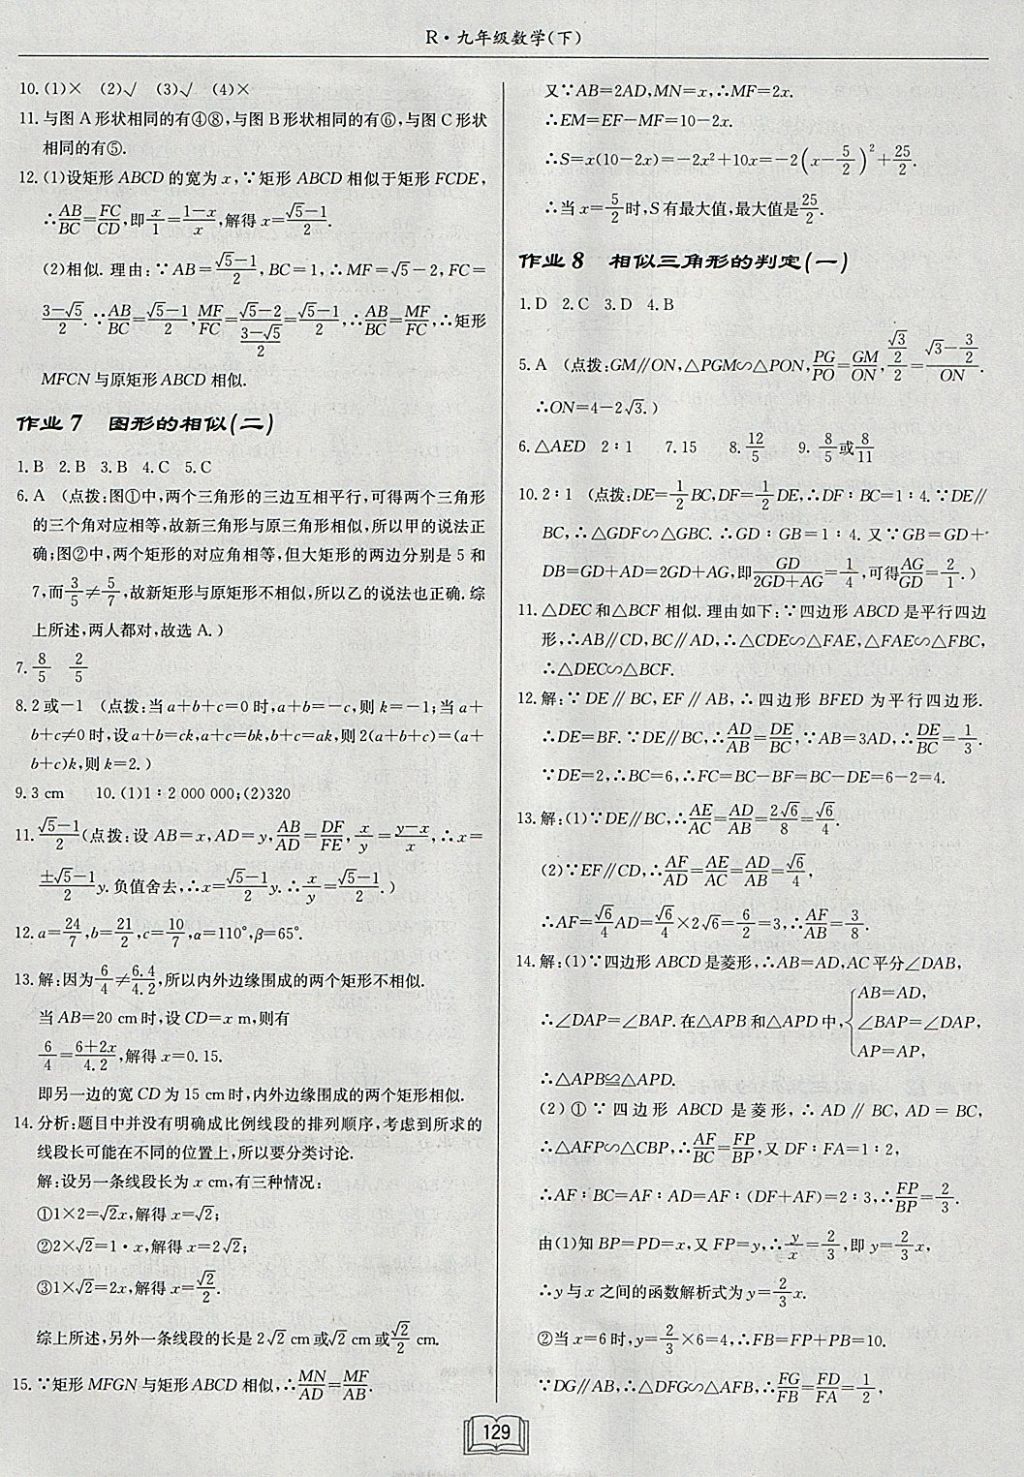 R·九年级数学(下)
10.(1)× (2)√ (3)√ (4)×
11.与图A形状相同的有④⑧,与图B形状相同的有⑥,与图C形状
相同的有⑤.
12.(1)设矩形ABCD的宽为x,∵矩形ABCD相似于矩形FCDE,
∴AB/BC=FC/CD,即x/1=(1-x)/x,解得x=(√5-1)/2.
(2)相似.理由:∵AB=(√5-1)/2,BC=1,∴MF=√5-2,FC=
(3-√5)/2.∵AB/BC=(√5-1)/2,MF/FC=(√5-2)/((3-√5)/2)=(√5-1)/2,∴AB/BC=MF/FC,∴矩形
MFCN与原矩形ABCD相似.
作业7 图形的相似(二)
1.B 2.B 3.B 4.C 5.C
6.A (点拨:图①中,两个三角形的三边互相平行,可得两个三角形
的三个角对应相等,故新三角形与原三角形相似,所以甲的说法正
确;图②中,两个矩形的对应角相等,但大矩形的两边分别是5和
7,而3/5≠5/7,故新矩形与原矩形不相似,所以乙的说法也正确.综
上所述,两人都对,故选A.)
7.8/5 2/5
8.2或-1 (点拨:当a+b+c=0时,a+b=-c,则k=-1;当a+
b+c≠0时,设a+b=ck,a+c=bk,b+c=ak,则2(a+b+c)=(a+
b+c)k,则k=2.)
9.3 cm 10.(1)1∶2 000 000;(2)320
11.(√5-1)/2(点拨:设AB=x,AD=y,AB/AD=DF/FE,x/y=(y-x)/x,∴x=
(±√5-1)/2y.负值舍去,∴x=(√5-1)/2y.∴x/y=(√5-1)/2.)
12.a=24/7,b=21/2,c=10/7,α=110°,β=65°.
13.解:因为6/4≠6.4/4.2,所以内外边缘围成的两个矩形不相似.
当AB=20 cm时,设CD=x m,则有
6/4=(6+2x)/4.2,解得x=0.15.
即另一边的宽CD为15 cm时,内外边缘围成的两个矩形相似.
14.分析:题目中并没有明确成比例线段的排列顺序,考虑到所求的
线段长可能在不同的位置上,所以要分类讨论.
解:设另一条线段长为x cm,有三种情况:
①1×2=√2x,解得x=√2;
②2×√2=1·x,解得x=2√2;
③1×√2=2x,解得x=√2/2.
综上所述,另外一条线段的长是2√2 cm或√2 cm或√2/2 cm.
15.∵矩形MFGN与矩形ABCD相似,∴MN/AD=MF/AB.
又∵AB=2AD,MN=x,∴MF=2x.
∴EM=EF-MF=10-2x.
∴S=x(10-2x)=-2x²+10x=-2(x-5/2)²+25/2.
∴当x=5/2时,S有最大值,最大值是25/2.
作业8 相似三角形的判定(一)
1.D 2.C 3.D 4.B
5.A (点拨:GM∥ON,△PGM∽△PON,PG/PO=GM/ON,(√3/2)/2=(√3-3/2)/ON.
∴ON=4-2√3.)
6.△AED 2∶1 7.15 8.12/5 9.8/5或8/11
10.2∶1 (点拨:DE=1/2BC,DF=1/2DE,∴DF∶BC=1∶4.∵DE∥
BC,∴△GDF∽△GBC.∴GD∶GB=1∶4.又∵GB=GD+
DB=GD+AD=2GD+AG,即GD/(2GD+AG)=1/4,可得AG/GD=2/1.)
11.△DEC和△BCF相似.理由如下:∵四边形ABCD是平行四边
形,∴AB∥CD,BC∥AD,∴△CDE∽△FAE,△FAE∽△FBC,
∴△DEC∽△BCF.
12.解:∵DE∥BC,EF∥AB,∴四边形BFED为平行四边形.
∴DE=BF.∵DE∥BC,∴AD/AB=DE/BC,∵AB=3AD,∴DE/BC=1/3.
∵DE=2,∴BC=6,∴FC=BC-BF=BC-DE=6-2=4.
13.解:(1)∵DE∥BC,∴AE/AC=AD/AB=2√6/8=√6/4.
(2)∵EF∥CD,∴AF/AD=AE/AC=AD/AB=√6/4,
∴AF=√6/4AD=√6/4×2√6=6/2=3,∴AF/AB=3/8.
14.解:(1)∵四边形ABCD是菱形,∴AB=AD,AC平分∠DAB,
∴∠DAP=∠BAP.在△APB和△APD中,{AB=AD,
∠BAP=∠DAP,
AP=AP,
∴△APB≌△APD.
(2)①∵四边形ABCD是菱形,∴AD∥BC,AD=BC,
∴△AFP∽△CBP,∴AF/BC=FP/BP,又DF∶FA=1∶2,
∴AF∶BC=AF∶AD=AF∶(DF+AF)=2∶3,∴FP/BP=2/3.
由(1)知BP=PD=x,又FP=y,∴y/x=2/3,即y=2/3x,
∴y与x之间的函数解析式为y=2/3x.
②当x=6时,y=2/3×6=4,∴FB=FP+PB=10.
∵DG∥AB,∴△DFG∽△AFB,∴FG/FB=FD/FA=1/2,
129